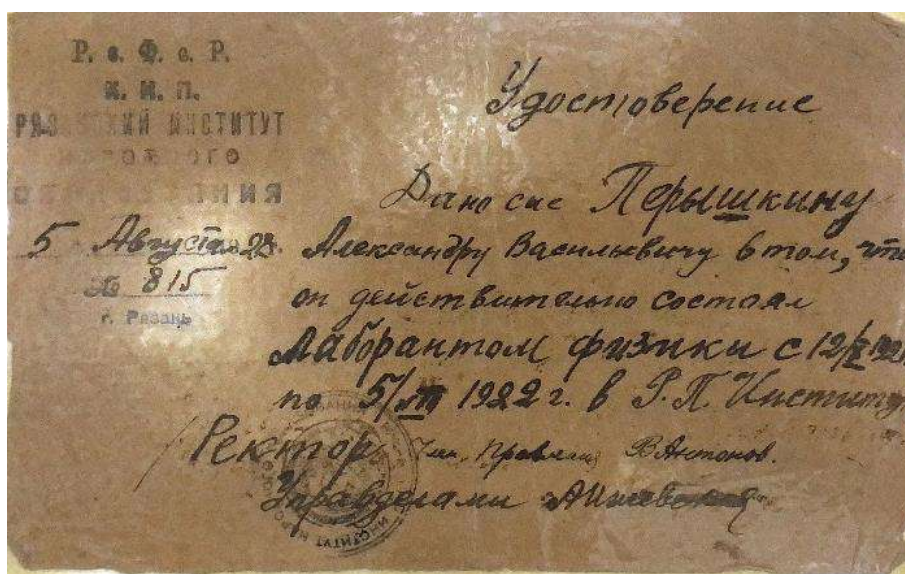 Р. с. Ф. с. Р.
Н. К. П.
РЯЗАНСКИЙ ИНСТИТУТ
НАРОДНОГО
ОБРАЗОВАНИЯ
5 Августа 22 г.
№ 815
г. Рязань
Удостоверение
Дано сие Перышкину
Александру Васильевичу в том, что
он действительно состоял
Лаборантом физики с 12/X 192
по 5/VIII 1922 г. в Р. П. Институт
Ректор Чл. Правлен. В Антонов.
Управделами